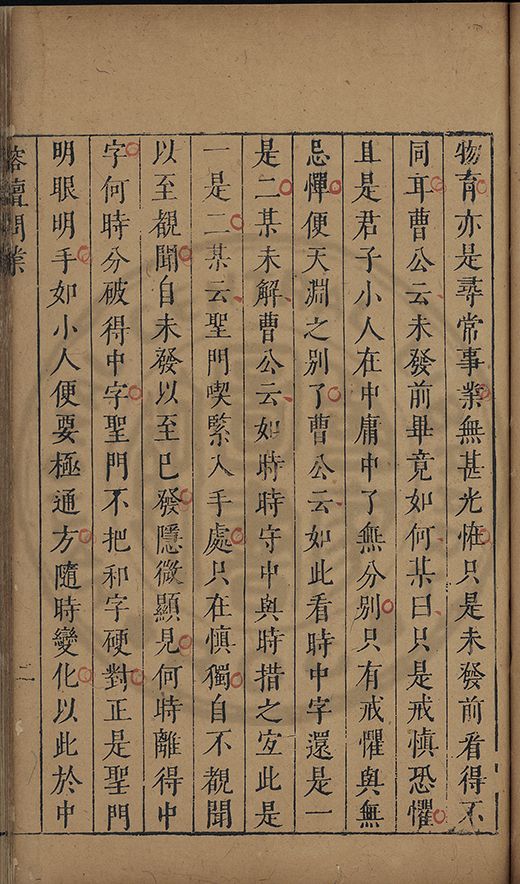 物育亦是尋常事業無甚光恠只是未發前看得不
同耳曹公云未發前畢竟如何某曰只是戒慎恐懼
且是君子小人在中庸中了無分別只有戒懼與無
忌憚便天淵之別了曹公云如此看時中字還是一
是二某未解曹公云如時時守中與時措之宜此是
一是二某云聖門喫緊入手處只在慎獨自不覩聞
以至覩聞自未發以至已發隱微顯見何時離得中
字何時分破得中字聖門不把和字硬對正是聖門
明眼明手如小人便要極通方隨時變化以此於中
榕壇問業
二